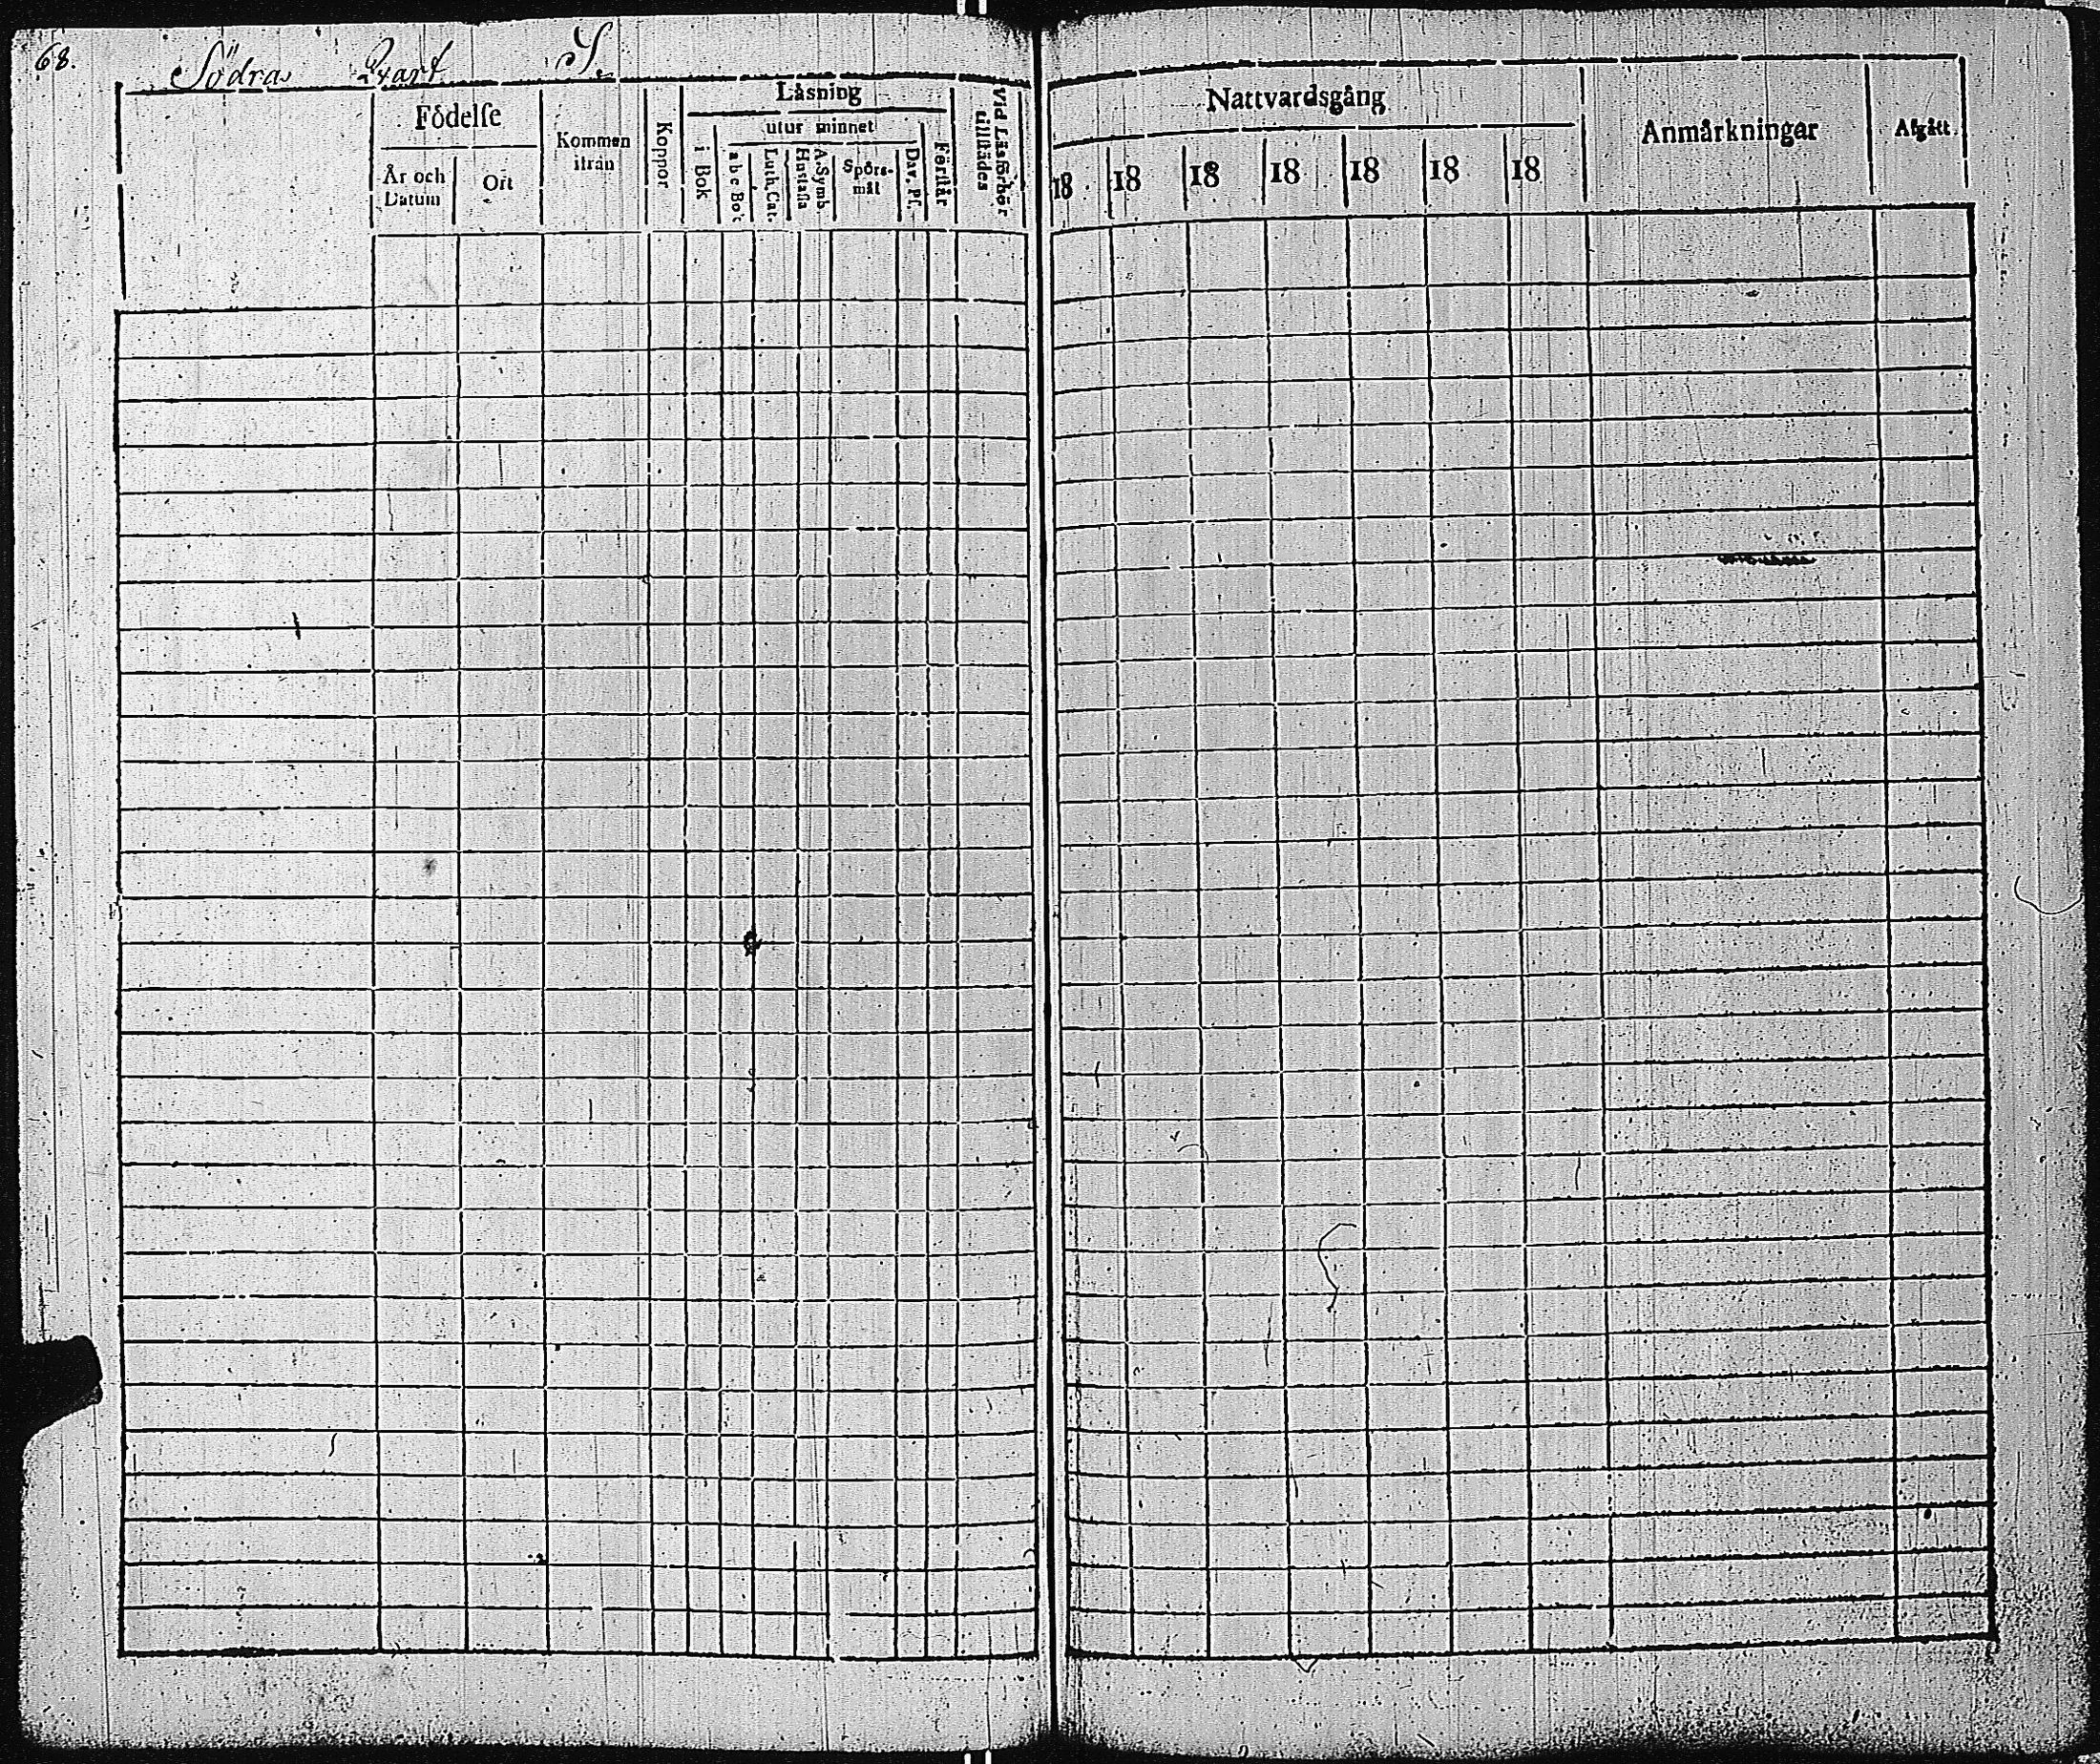 68.
Södra Qvart S.
Födelse
År och Datum
Ort
Kommen ifrån
Koppor
Låsning
i Bok
utur minnet
a b c Bok
Luth. Cat.
A. Symb. Hustafla
Spörs-mål
Dav. Ps.
Förstår
Vid Läsförhör tillstädes
Nattvardsgång
18 18 18 18 18 18 18
Anmärkningar
Afgått.